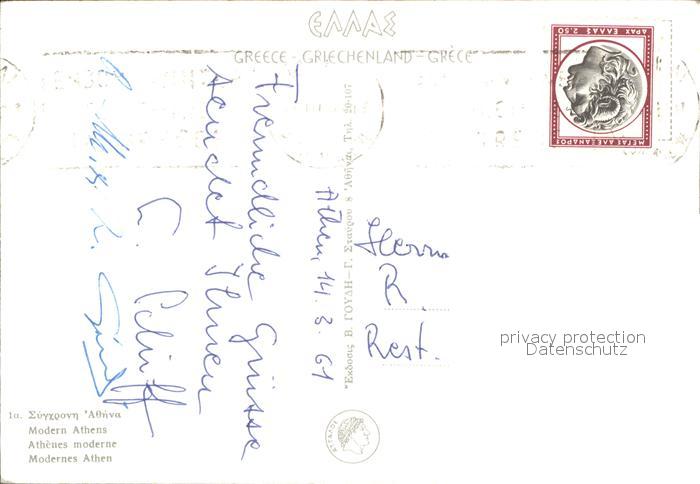 ΕΛΛΑΣ
GREECE - GRIECHENLAND - GRÈCE
ΔΡΑΧ ΕΛΛΑΣ 2.50
ΜΕΓΑΣ ΑΛΕΞΑΝΔΡΟΣ
Athen, 14. 3. 61
Freundliche Grüsse
sendet Ihnen
Herrn
R.
Rest.
privacy protection
Datenschutz
Ἔκδοσις Β. ΓΟΥΔΗ—Γ. Σταύρου 8 Ἀθῆναι, Τηλ. 29-107
ΑΤΤΑΛΟΣ
1α. Σύγχρονη Ἀθήνα
Modern Athens
Athènes moderne
Modernes Athen